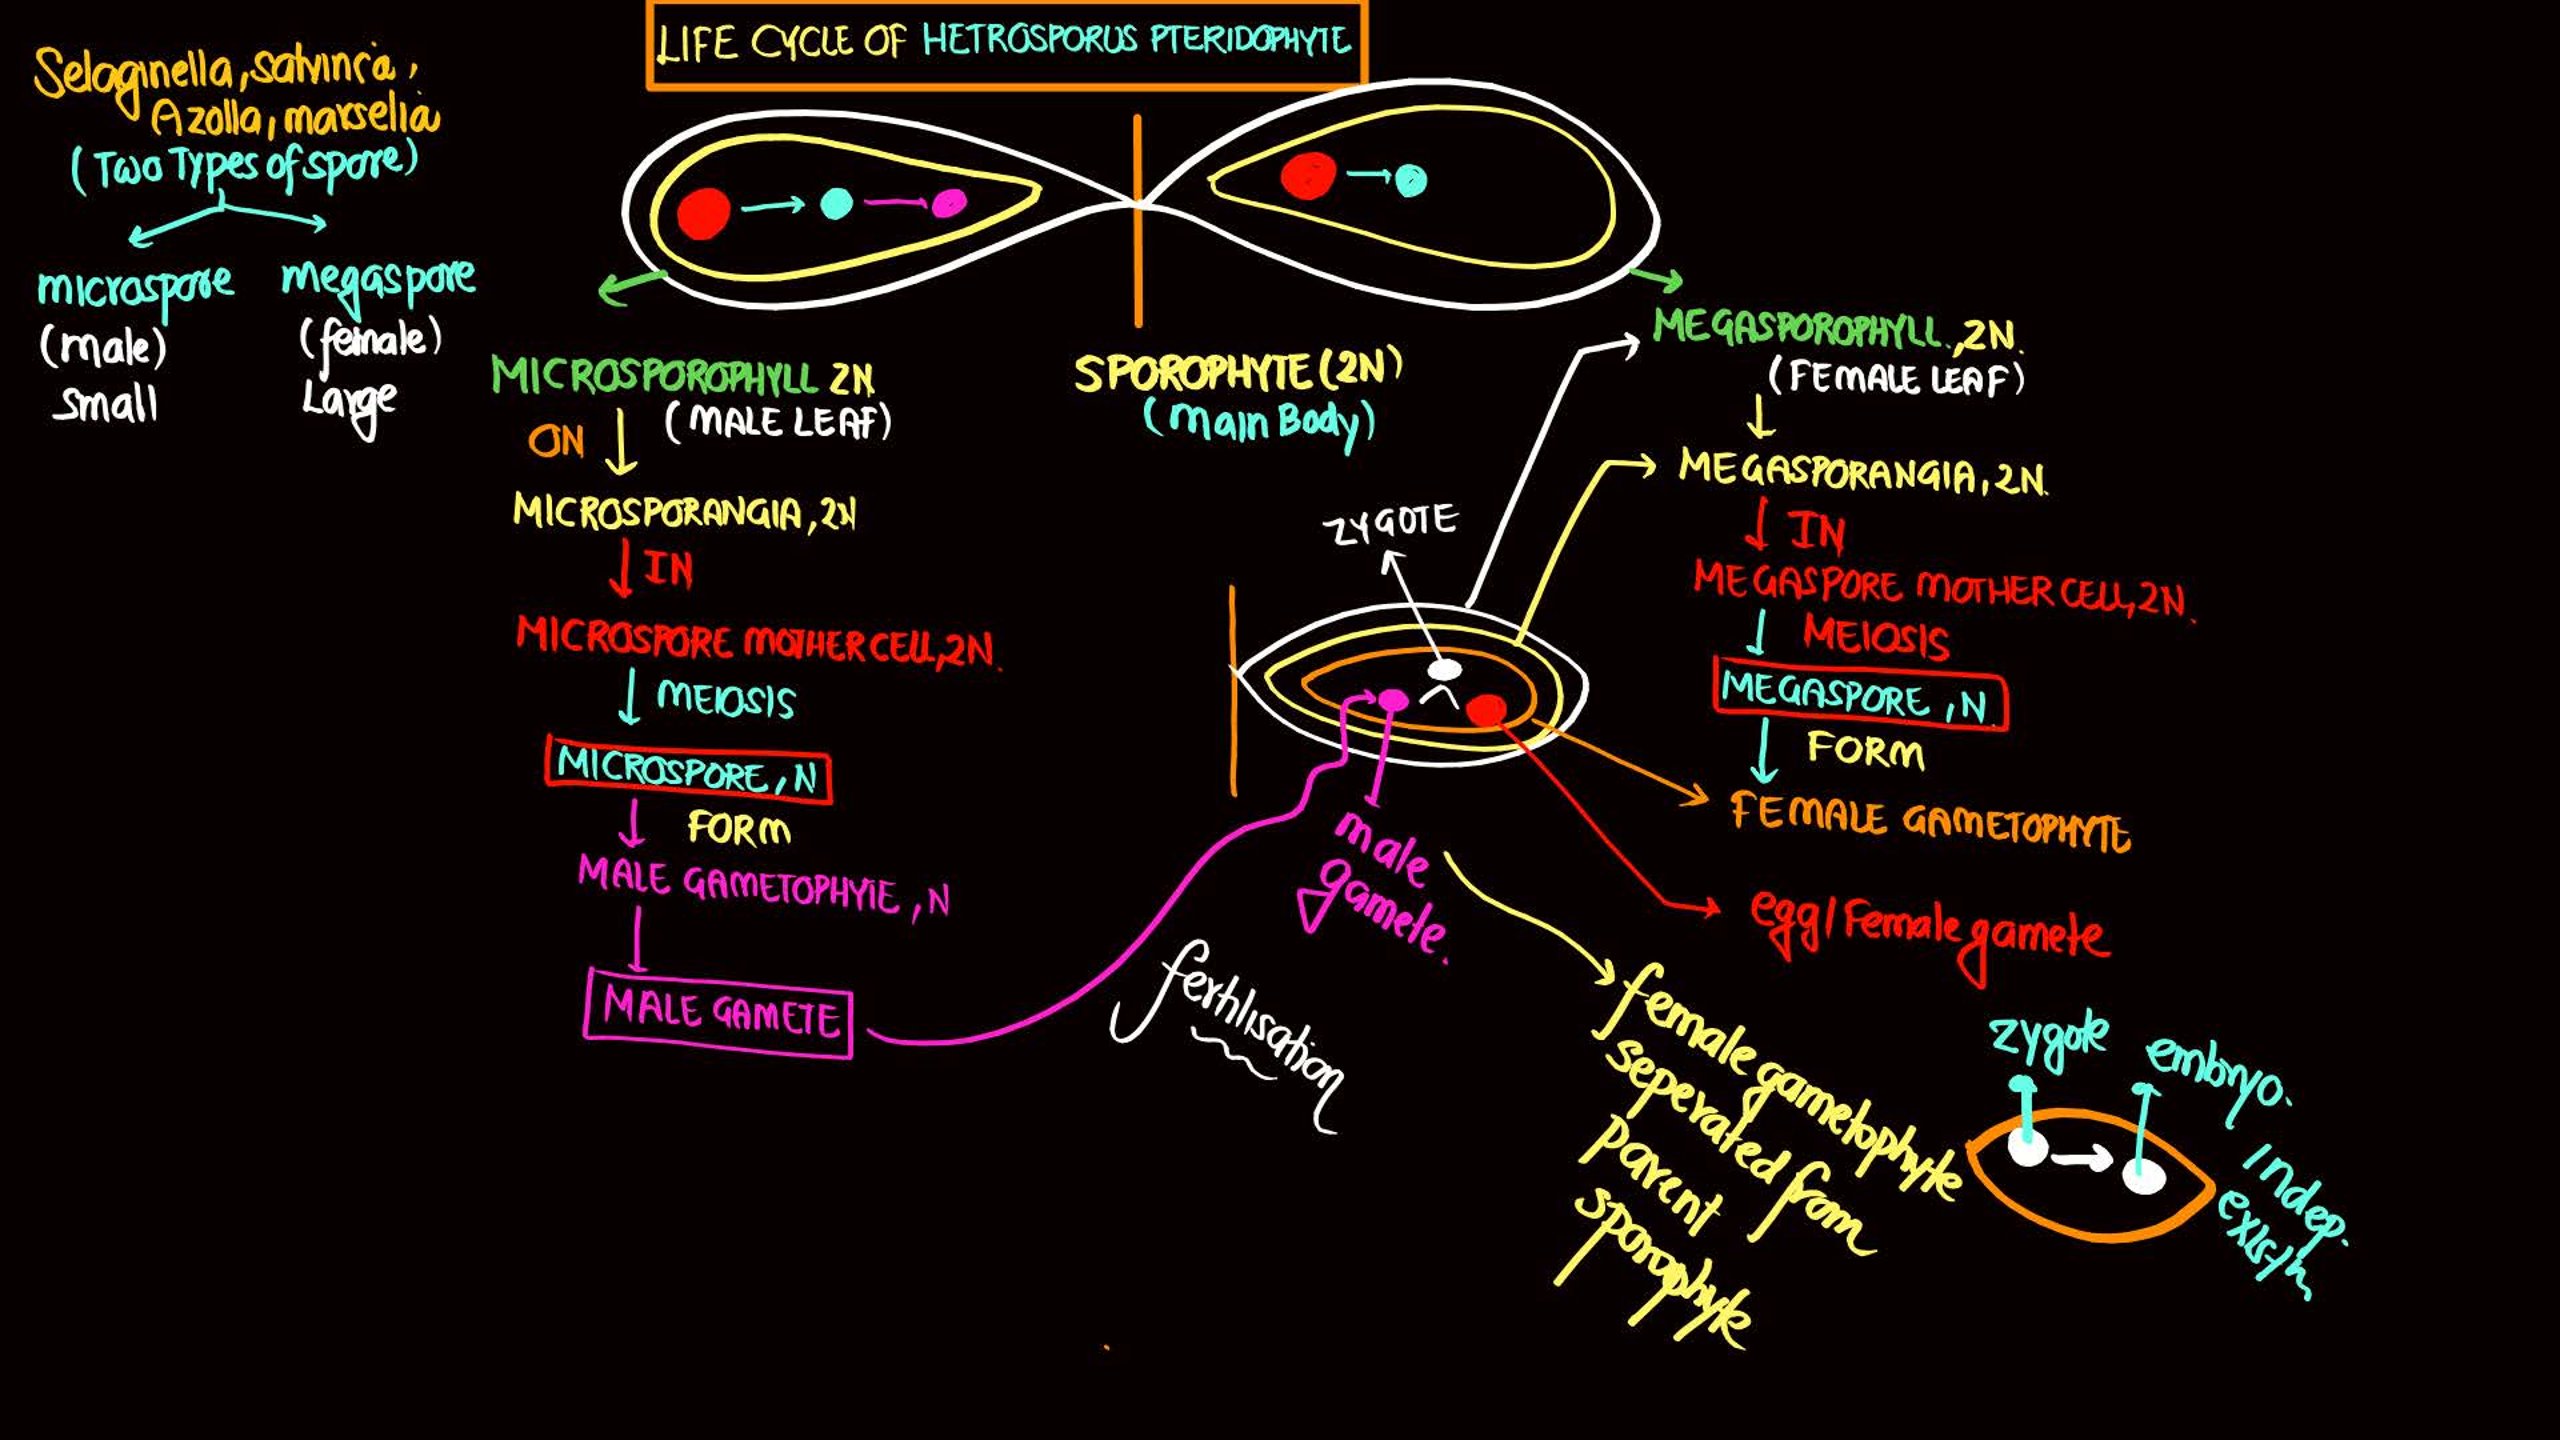 LIFE CYCLE OF HETROSPORUS PTERIDOPHYTE
Selaginella, salvinia,
Azolla, marselia
(Two Types of spore)
microspore
(male)
small
megaspore
(female)
Large
MICROSPOROPHYLL 2N
(MALE LEAF)
ON
MICROSPORANGIA, 2N
IN
MICROSPORE MOTHER CELL, 2N.
MEIOSIS
MICROSPORE, N
FORM
MALE GAMETOPHYTE, N
MALE GAMETE
SPOROPHYTE (2N)
(main Body)
ZYGOTE
male
gamete.
fertilisation
MEGASPOROPHYLL, 2N.
(FEMALE LEAF)
MEGASPORANGIA, 2N.
IN
MEGASPORE MOTHER CELL, 2N.
MEIOSIS
MEGASPORE, N.
FORM
FEMALE GAMETOPHYTE
egg/Female gamete
female gametophyte
seperated from
parent
sporophyte
zygote
embryo.
indep.